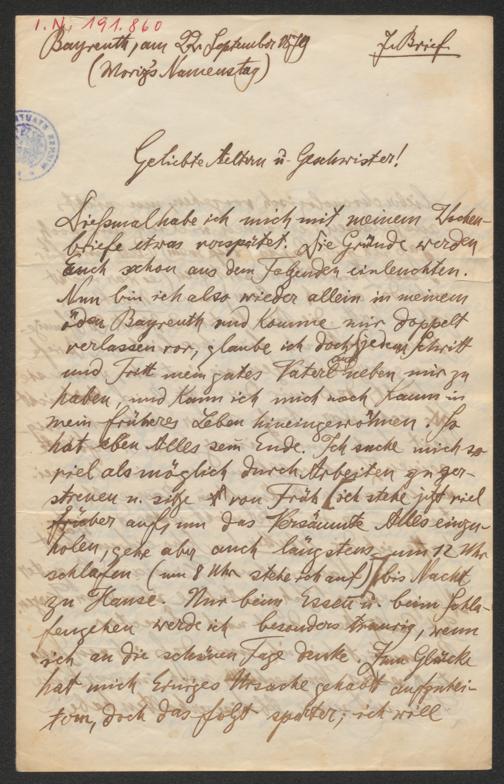 I.N. 191.860
Bayreuth, am 22. September 1879
7. Brief.
(Moriz's Namenstag)
Geliebte Aeltern u. Geschwister!
Dießmal habe ich mich mit meinem Wochen-
briefe etwas verspätet. Die Gründe werden
Euch schon aus dem Folgenden einleuchten.
Nun bin ich also wieder allein in meinem
öden Bayreuth und komme mir doppelt
verlassen vor, glaube ich doch jeden Schritt
und Tritt mein gutes Vaterl neben mir zu
haben, und kann ich mich noch kaum in
mein früheres Leben hineingewöhnen. So
hat eben Alles sein Ende. Ich suche mich so
viel als möglich durch Arbeiten zu zer-
streuen u. sitze von Früh (ich stehe jetzt viel
früher auf, um das Versäumte Alles einzu-
holen, gehe aber auch längstens um 12 Uhr
schlafen (um 8 Uhr stehe ich auf)) bis Nacht
zu Hause. Nur beim Essen u. beim Schla-
fengehen werde ich besonders traurig, wenn
ich an die schönen Tage denke. Zum Glücke
hat mich Einiges Ursache gehabt aufzuhei-
tern, doch das folgt später; ich will